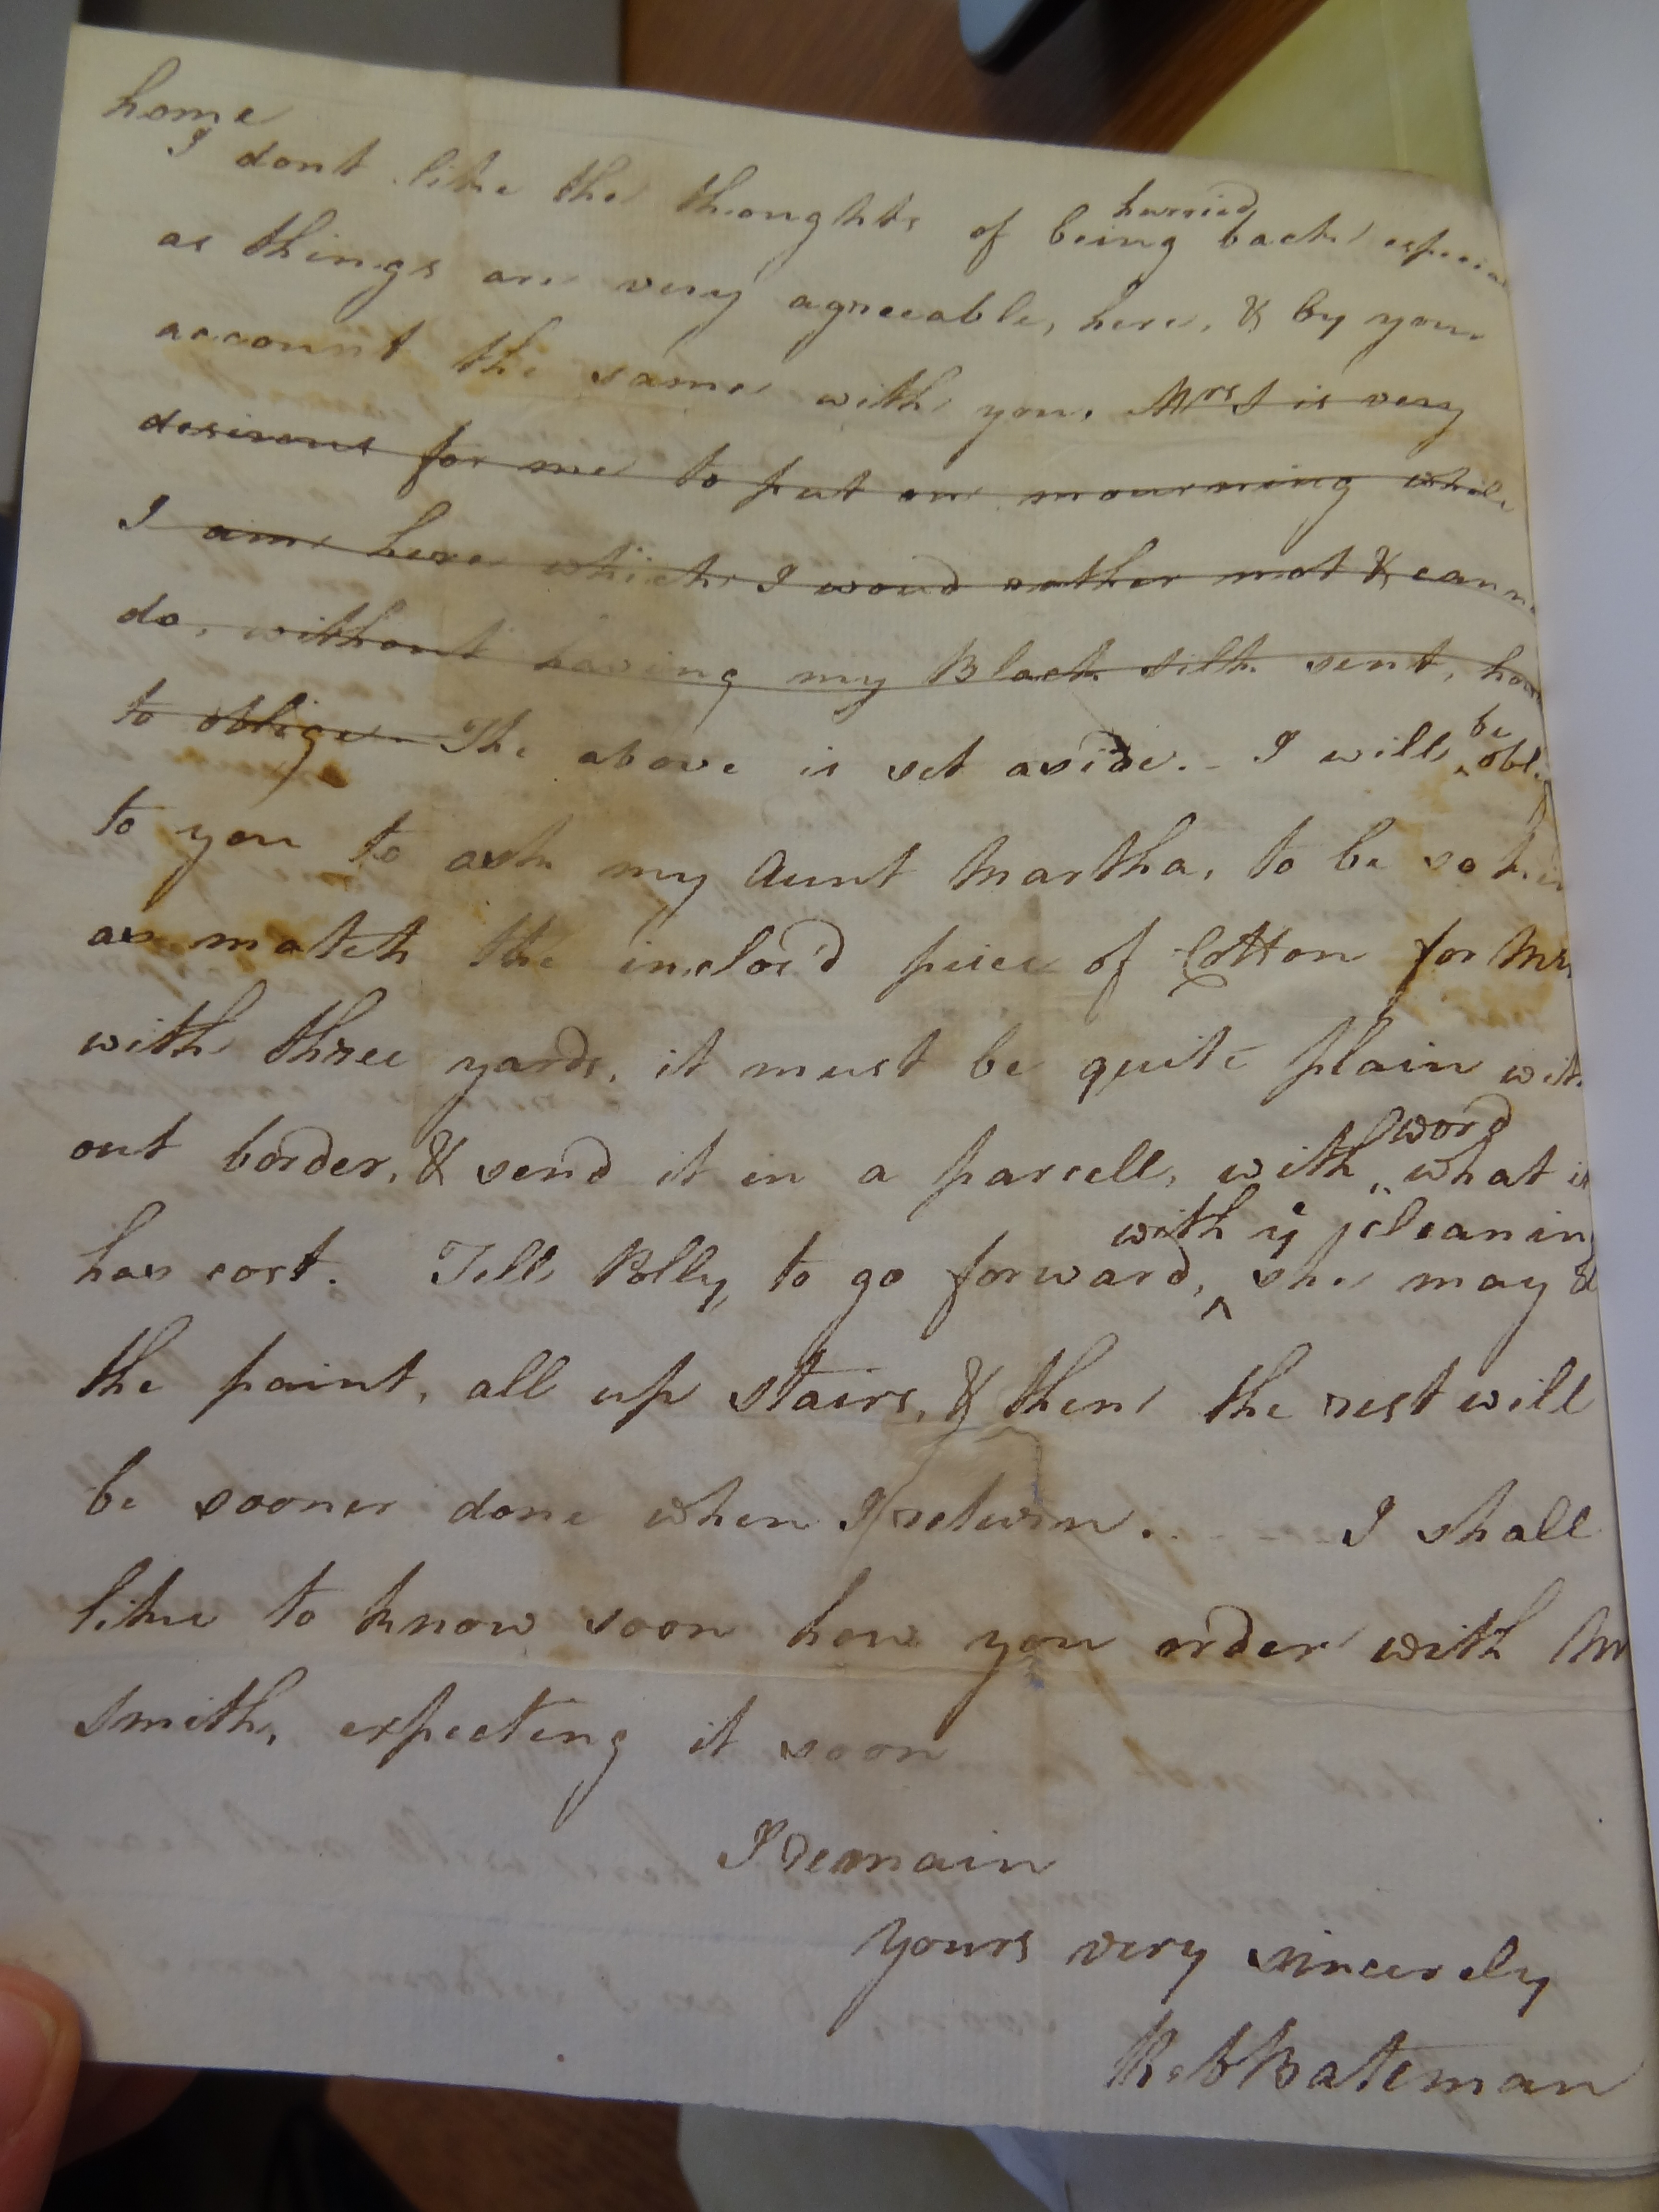 home
I dont like the thoughts of being hurried back
as things are very agreeable, here, & by your
account the same with you. Mrs S is very
desirous for me to put on mourning while
I am here which I woud rather not &
do, without having my Black silk sent,
to oblige. The above is set aside. - I will be
to you to ask my Aunt Martha, to be so
as match the inclos'd piece of Cotton for
with three yards, it must be quite plain with
out border, & send it in a parcell, with word what it
has cost. Tell Polly, to go forward, with ye cleaning she may
the paint, all up stairs, & then the rest will
be sooner done when I return. I shall
like to know soon how you order with
Smith, expecting it soon
I Remain
Yours very sincerely
Reb Bateman